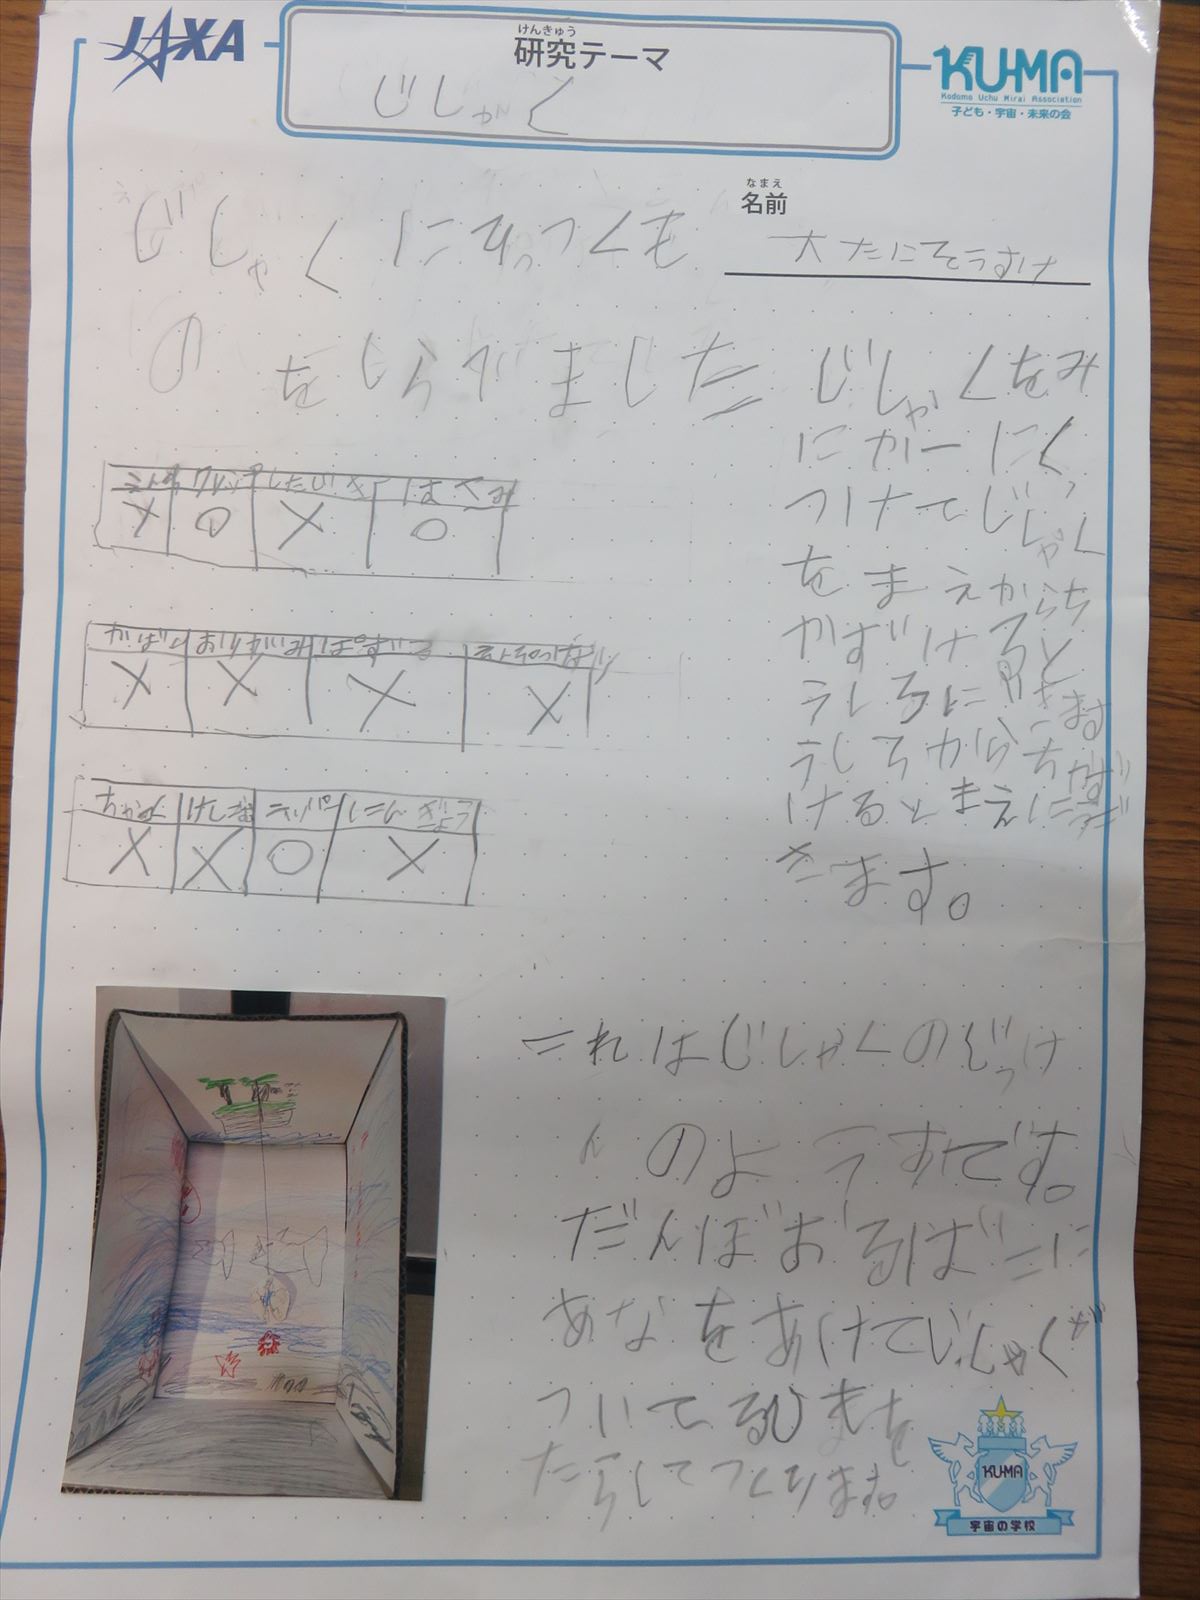 JAXA
けんきゅう
研究テーマ
じしゃく
KU-MA
Kodomo Uchu Mirai Association
子ども・宇宙・未来の会
なまえ
名前
大たにそうすけ
じしゃくにくっつくも
のをしらべました
クリップ したじき はさみ
X O X O
かばん おりがみ ぱずる
X X X X
けしごむ にんぎょう
X X O X
じしゃくをみ
にかーにく
つけてじしゃく
をまえからち
かずけると
うしろに
うしろからちかず
けるとまえに
きます。
これはじしゃくのじっけ
んのようすです。
だんぼおるばこに
あなをあけてじしゃくが
ついてるひもを
たらしてつくります。
KU-MA
宇宙の学校